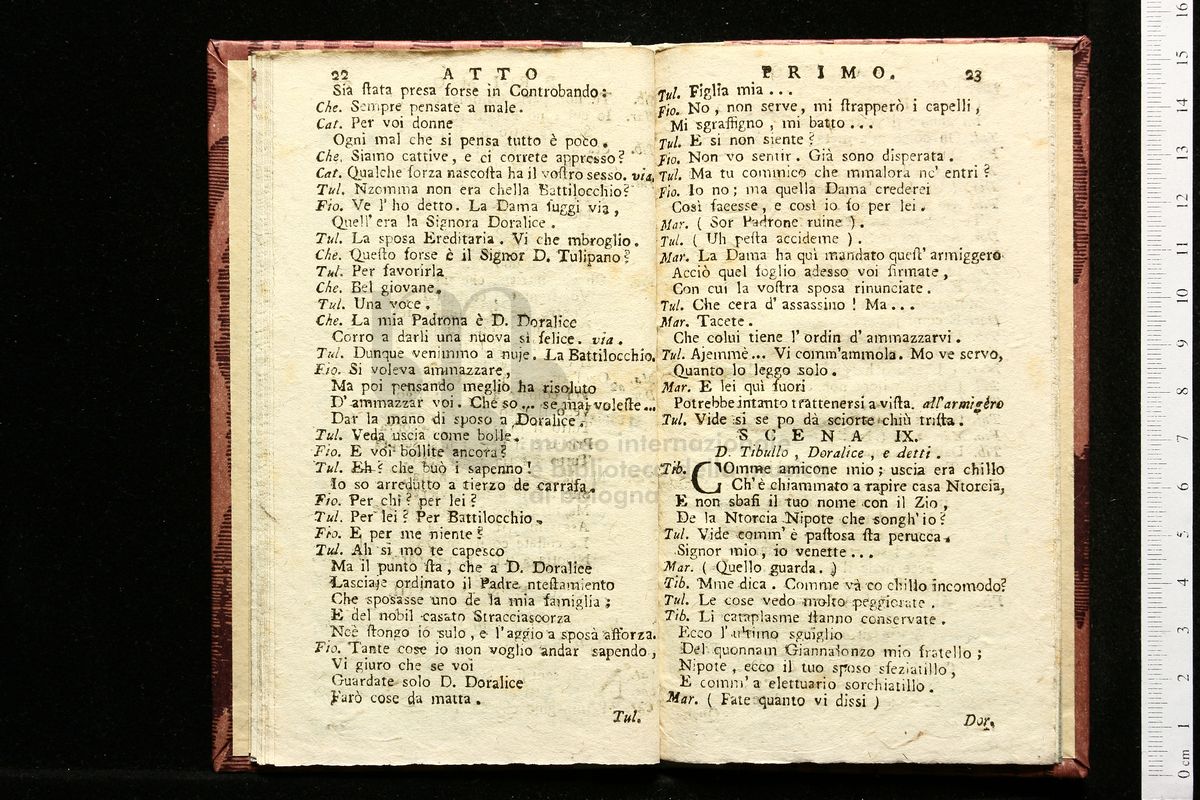 22 ATTO
Sia ſtata presa forse in Controbando:
Che. Sempre pensate a male.
Cat. Per voi donne
Ogni mal che si pensa tutto è poco.
Che. Siamo cattive, e ci correte appresso?
Cat. Qualche forza nascoſta ha il voſtro sesso. via.
Tul. Nzomma non era chella Battilocchio?
Fio. Ve l'ho detto. La Dama fuggì via,
Quell'era la Signora Doralice.
Tul. La sposa Ereditaria. Vi che mbroglio.
Che. Queſto forse è il Signor D. Tulipano?
Tul. Per favorirla
Che. Bel giovane.
Tul. Una voce.
Che. La mia Padrona è D. Doralice
Corro a darli una nuova sì felice. via.
Tul. Dunque venimmo a nuje. La Battilocchio.
Fio. Si voleva ammazzare,
Ma poi pensando meglio ha risoluto
D'ammazzar voi. Che so... se mai voleſte...
Dar la mano di sposo a Doralice.
Tul. Veda uscia come bolle.
Fio. E voi bollite ancora?
Tul. Eh? che buò i sapenno!
Io so arredutto a tierzo de carrafa.
Fio. Per chi? per lei?
Tul. Per lei? Per Battilocchio.
Fio. E per me niente?
Tul. Ah si mo te capesco
Ma il punto ſta, che a D. Doralice
Lasciaje ordinato il Padre nteſtamiento
Che sposasse uno de la mia famiglia;
E del nobil casato Stracciascorza
Ncè ſtongo io sulo, e l'aggio a sposà afforza.
Fio. Tante cose io non voglio andar sapendo,
Vi giuro che se voi
Guardate solo D. Doralice
Farò cose da matta.
Tul.
PRIMO. 23
Tul. Figlia mia...
Fio. No, non serve, mi ſtrapperò i capelli,
Mi sgraffigno, mi batto...
Tul. E si non siente?
Fio. Non vo sentir. Già sono disperata.
Tul. Ma tu commico che mmalora nc'entri?
Fio. Io no; ma quella Dama crederei
Così facesse, e così io fo per lei.
Mar. (Sor Padrone ruine).
Tul. (Uh peſta accideme).
Mar. La Dama ha quì mandato queſt'armiggero
Acciò quel foglio adesso voi firmate,
Con cui la voſtra sposa rinunciate.
Tul. Che cera d'assassino! Ma...
Mar. Tacete.
Che colui tiene l'ordin d'ammazzarvi.
Tul. Ajemmè... Vi comm'ammola. Mo ve servo,
Quanto lo leggo solo.
Mar. E lei quì fuori
Potrebbe intanto trattenersi a viſta. all'armigéro
Tul. Vide si se po dà sciorte chiù triſta.
SCENA IX.
D. Tibullo, Doralice, e detti.
Tib. COmme amicone mio; uscia era chillo
Ch'è chiammato a rapire casa Ntorcia,
E non sbafi il tuo nome con il Zio,
De la Ntorcia Nipote che songh'io?
Tul. Vide comm'è paſtosa ſta perucca.
Signor mio, io venette...
Mar. (Quello guarda.)
Tib. Mme dica. Comme và co chillo incomodo?
Tul. Le cose vedo molto peggiorate.
Tib. Li cataplasme ſtanno conservate.
Ecco l'ultimo sguiglio
Del quonnam Giannalonzo mio fratello;
Nipote, ecco il tuo sposo sfeziatillo,
E comm'a elettuario sorchiatillo.
Mar. (Fate quanto vi dissi)
Dor.
museo internazionale
e biblioteca
di bologna